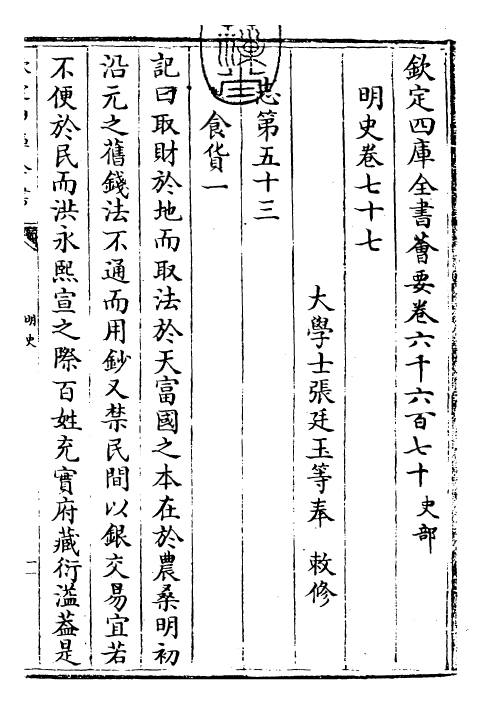 欽定四庫全書薈要卷六千六百七十 史部
明史卷七十七
大學士張廷玉等奉 敕修
志第五十三
食貨一
記曰取財於地而取法於天富國之本在於農桑明初
沿元之舊錢法不通而用鈔又禁民間以銀交易宜若
不便於民而洪永熙宣之際百姓充實府藏衍溢葢是
明史
一